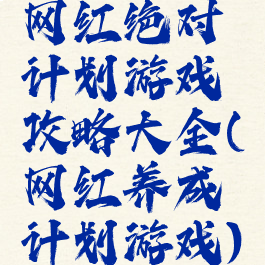 网红绝对
计划游戏
攻略大全(
网红养成
计划游戏)